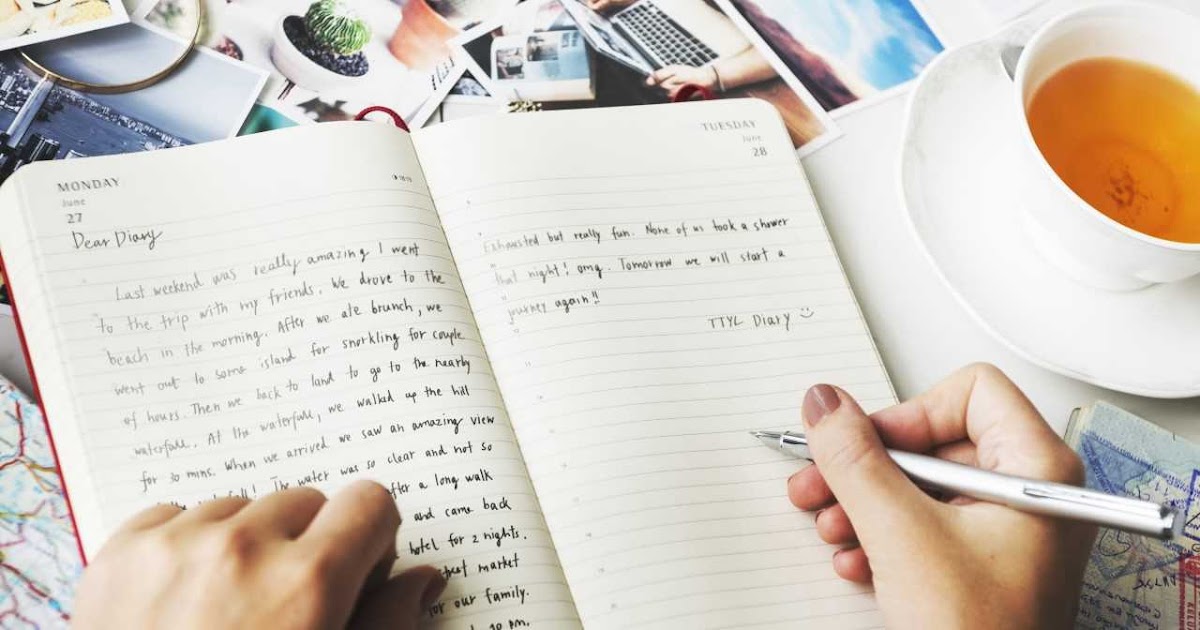 MONDAY
June
27
Dear Diary
Last weekend was really amazing I went
to the trip with my friends. We drove to the
beach in the morning. After we ate brunch, we
went out to some island for snorkling for couple
of hours. Then we back to land to go to the nearby
waterfall. At the waterfall, we walked up the hill
for 30 mins. When we arrived we saw an amazing view
The water was so clear and not so
after a long walk
and came back
hotel for 2 nights.
market
for our family.
10 pm.
TUESDAY
June
28
Exhausted but really fun. None of us took a shower
that night! omg. Tomorrow we will start a
journey again!!
TTYL Diary